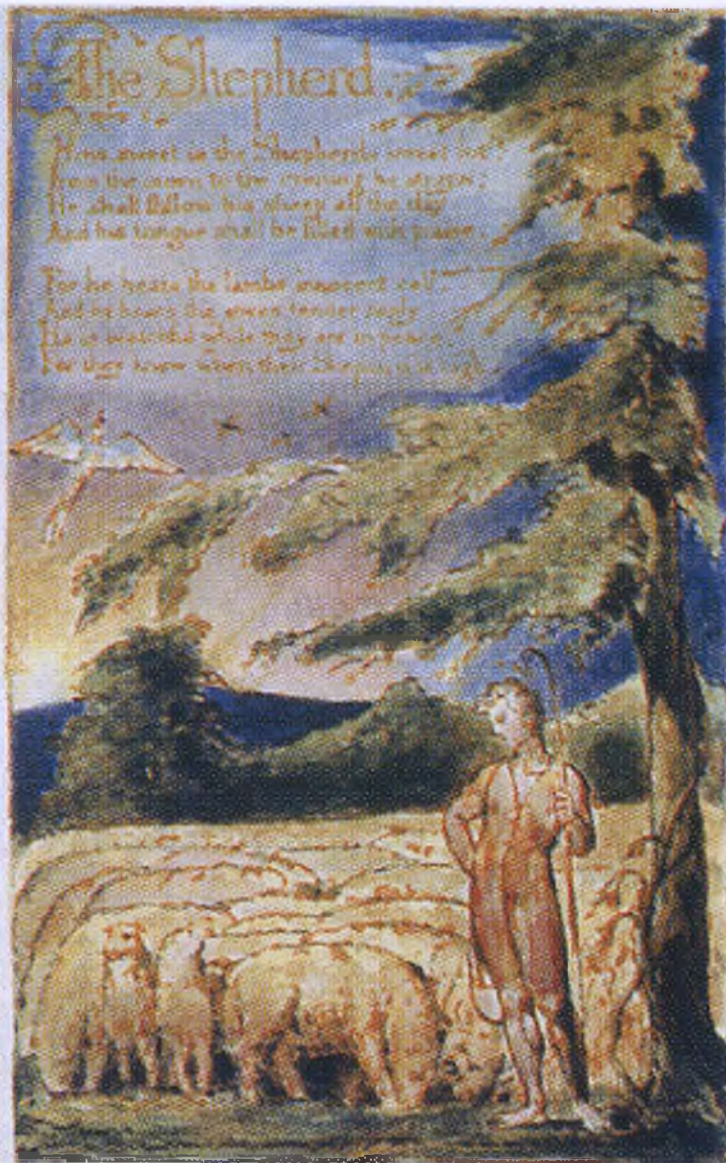 The Shepherd.
How sweet is the Shepherds sweet lot,
From the morn to the evening he strays:
He shall follow his sheep all the day
And his tongue shall be filled with praise.
For he hears the lambs innocent call,
And he hears the ewes tender reply,
He is watchful while they are in peace,
For they know when their Shepherd is nigh.